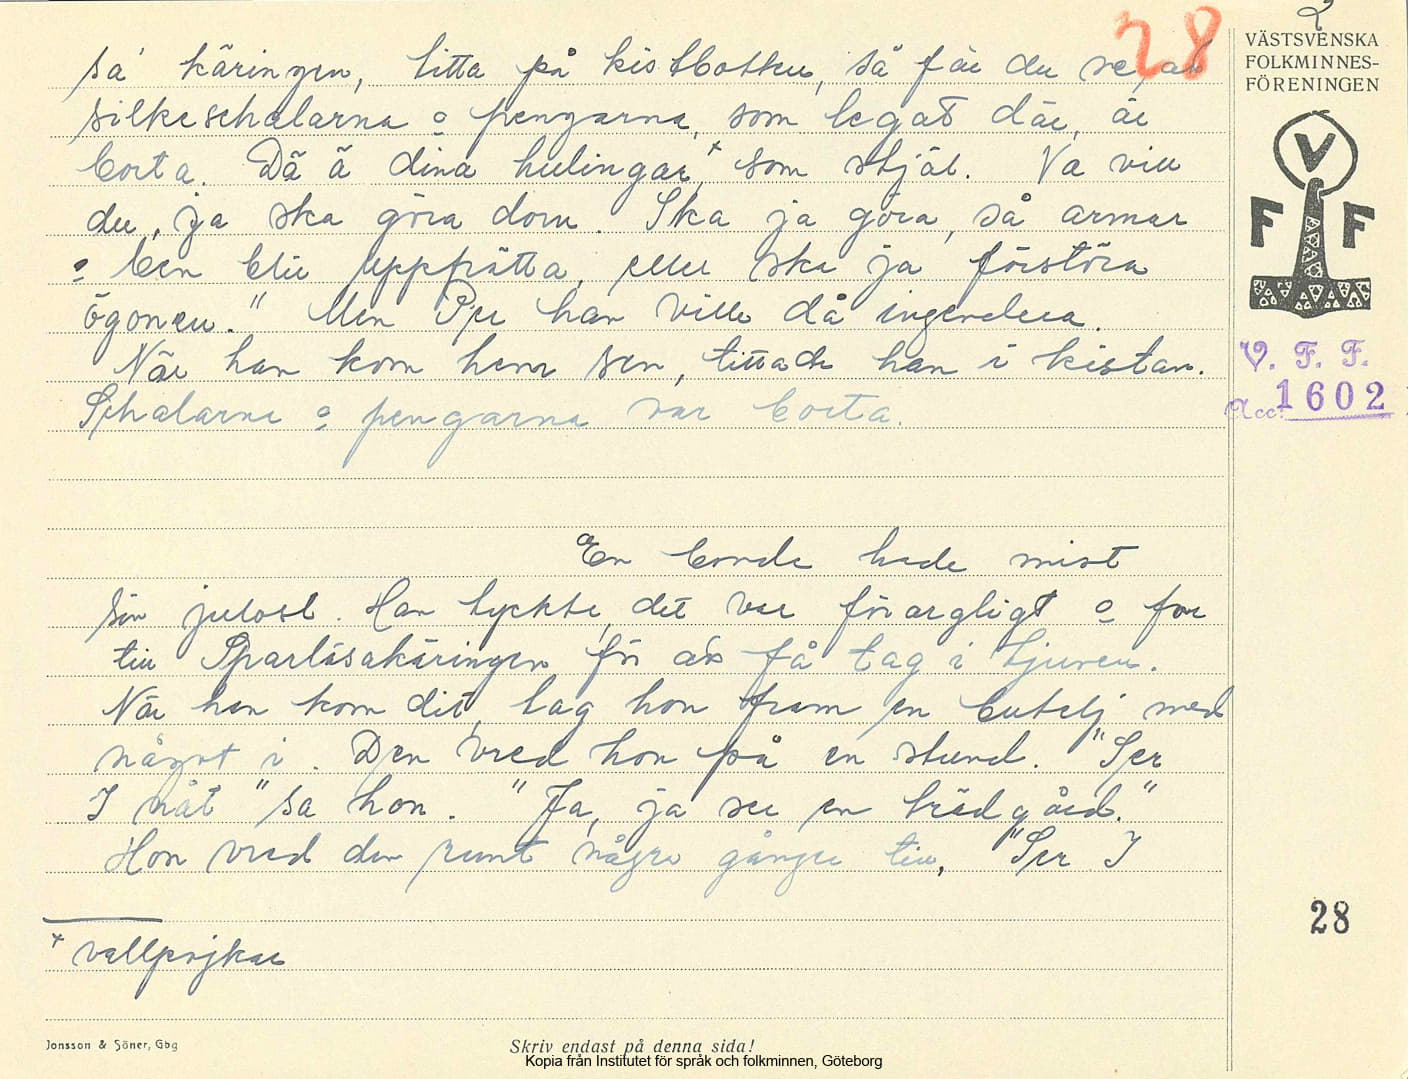 28
2
VÄSTSVENSKA
FOLKMINNES-
FÖRENINGEN
V
F F
V. F. F.
Acc. 1602
sa' käringen, titta på kistbotten, så får du se, att
silkeschalarna o pengarna, som legat där, är
borta. Dä ä dina hulingar,+ som stjäl. Va vill
du, ja ska göra dom. Ska ja göra, så armar
o ben blir uppfrätta, eller ska ja förstöra
ögonen." Men Per han ville då ingendera.
När han kom hem sen, tittade han i kistan.
Schalarna o pengarna var borta.
En bonde hade mist
sin julost. Han tyckte, det var förargligt o for
till Sparlösakäringen för att få tag i tjuven.
När han kom dit, tog hon fram en butelj med
något i. Den vred hon på en stund. "Ser
I nåt" sa hon. "Ja, ja ser en trädgård."
Hon vred den runt några gånger till, "Ser I
+ vallpojkar
28
Jonsson & Söner, Gbg
Skriv endast på denna sida!
Kopia från Institutet för språk och folkminnen, Göteborg